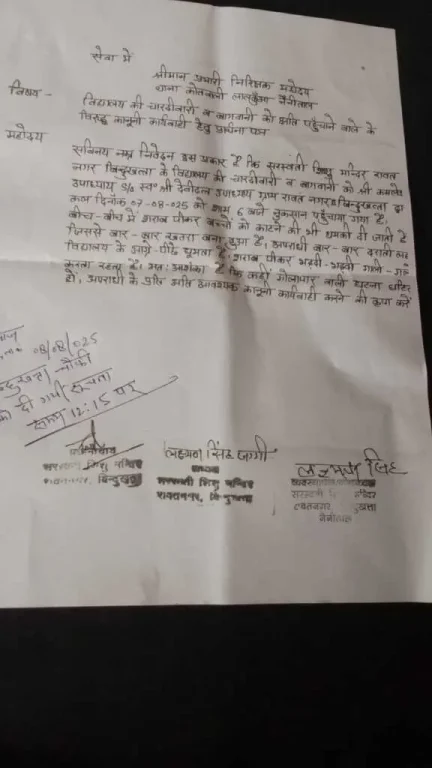 सेवा में
श्रीमान प्रभारी निरिक्षक महोदय
थाना कोतवाली लालकुआ नैनीताल
विषय - विद्यालय की चारदीवारी व बागवानी को क्षति पहुँचाने वाले के
विरुद्ध कानूनी कार्यवाही हेतु प्रार्थना पत्र
महोदय
सविनय नम्र निवेदन इस प्रकार है कि सरस्वती शिशु मन्दिर रावत
नगर बिन्दुखत्ता के विद्यालय की चारदीवारी व बागवानी को श्री कमलेश
उपाध्याय S/o स्व० श्री देवीदत्त उपाध्याय ग्राम रावत नगर बिन्दुखत्ता द्वारा
कल दिनाँक 07-08-025 को शाम 6 बजे नुकसान पहुँचाया गया है,
बीच-बीच में शराब पीकर बच्चों को काटने की भी धमकी दी जाती है
जिससे बार-बार खतरा बना हुआ है, अपराधी बार-बार दराती लेकर
विद्यालय के आगे-पीछे घूमता है, शराब पीकर भद्दी-भद्दी गाली-
करता रहता है। आशंका है कि कहीं वाली घटना घटित
हो, अपराधी के प्रति अति आवश्यक कानूनी कार्यवाही करने की कृपा करें
08/08/025
चौकी
को दी गयी सूचना
समय 12:15 पर
लक्ष्मण सिंह जग्गी
लक्ष्मण सिंह
प्रधानाचार्य
सरस्वती शिशु मन्दिर
रावतनगर, बिन्दुखत्ता
अध्यक्ष
सरस्वती शिशु मन्दिर
रावतनगर, बिन्दुखत्ता
सरस्वती शिशु मन्दिर
रावतनगर,
नैनीताल